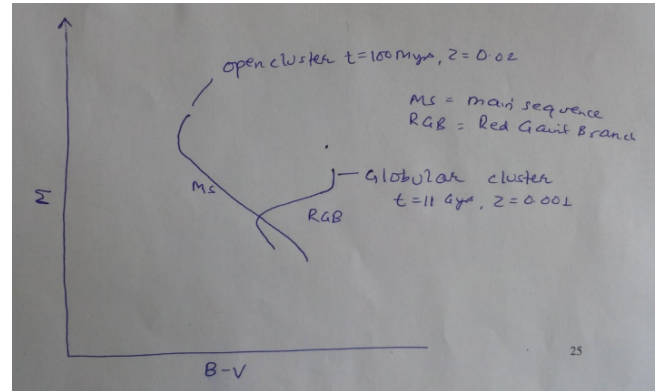 open cluster t=100 Myr, Z=0.02
MS = main sequence
RGB = Red Gaint Branch
MS
Globular cluster
t=11 Gyr, Z=0.001
RGB
M
B-V
25